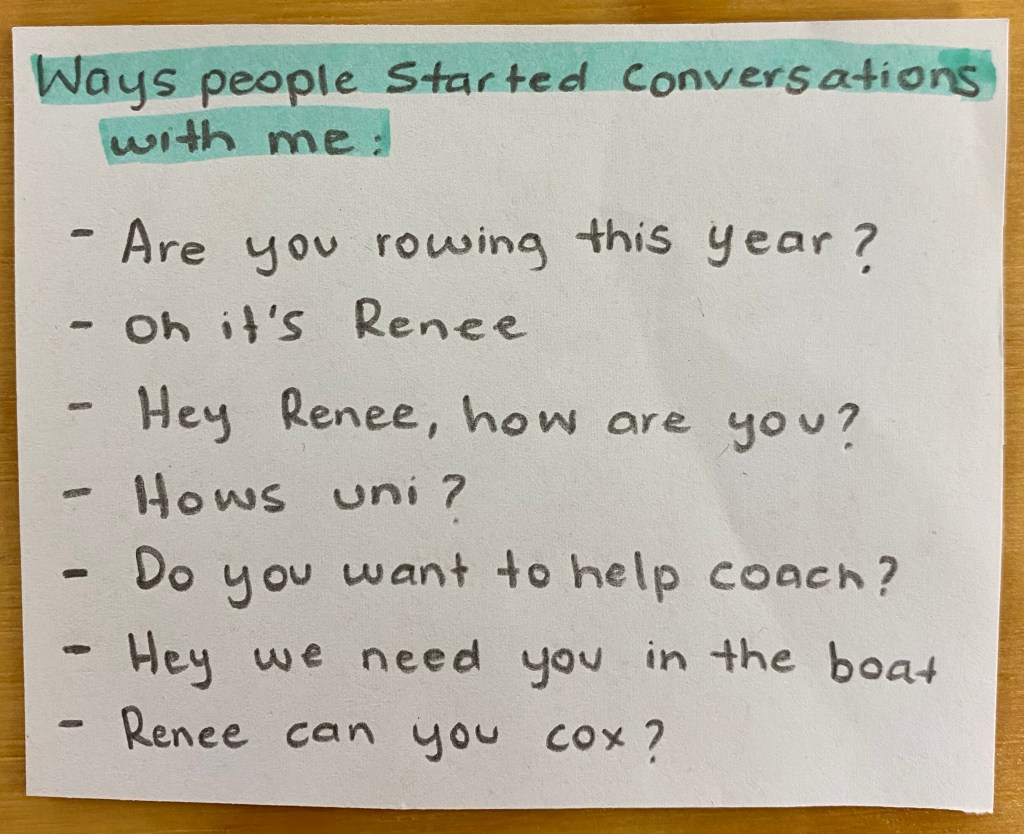 Ways people Started Conversations
with me:
- Are you rowing this year?
- Oh it's Renee
- Hey Renee, how are you?
- Hows uni?
- Do you want to help coach?
- Hey we need you in the boat
- Renee can you cox?